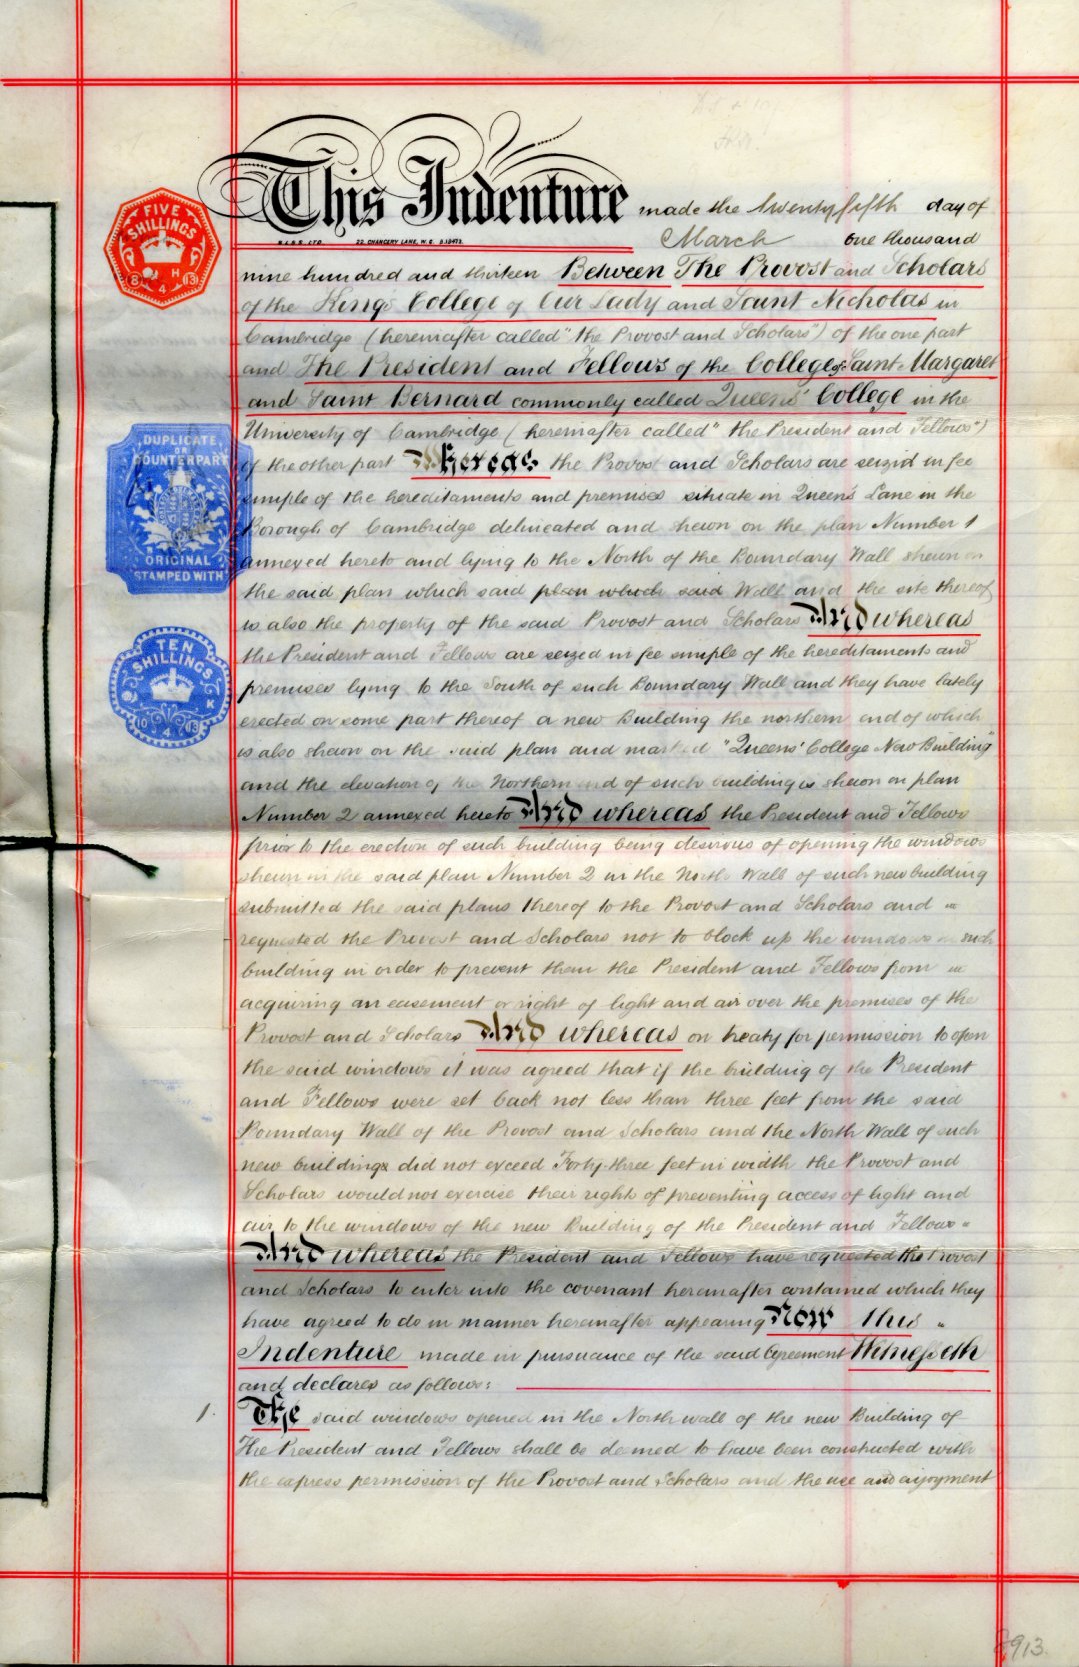 This Indenture made the twenty fifth day of
W.L.& S. LTD. 22, CHANCERY LANE, W.C.
March one thousand
FIVE
SHILLINGS
H
8 4 13
nine hundred and thirteen Between The Provost and Scholars
of the Kings College of Our Lady and Saint Nicholas in
Cambridge (hereinafter called "the Provost and Scholars") of the one part
and The President and Fellows of the College of Saint Margaret
and Saint Bernard commonly called Queens' College in the
University of Cambridge (hereinafter called "the President and Fellows")
DUPLICATE
OR
COUNTERPART
ORIGINAL
STAMPED WITH
of the other part Whereas the Provost and Scholars are seized in fee
simple of the hereditaments and premises situate in Queen's Lane in the
Borough of Cambridge delineated and shewn on the plan Number 1
annexed hereto and lying to the North of the Boundary Wall shewn on
the said plan which said plan which said Wall and the site thereof
is also the property of the said Provost and Scholars And whereas
TEN
SHILLINGS
K
10 4 13
the President and Fellows are seized in fee simple of the hereditaments and
premises lying to the South of such Boundary Wall and they have lately
erected on some part thereof a new Building the northern end of which
is also shewn on the said plan and marked "Queens' College New Building"
and the elevation of the Northern end of such building is shewn on plan
Number 2 annexed hereto And whereas the President and Fellows
prior to the erection of such building being desirous of opening the windows
shewn in the said plan Number 2 in the North Wall of such new building
submitted the said plans thereof to the Provost and Scholars and
requested the Provost and Scholars not to block up the windows in such
building in order to prevent them the President and Fellows from
acquiring an easement or right of light and air over the premises of the
Provost and Scholars And whereas on treaty for permission to open
the said windows it was agreed that if the building of the President
and Fellows were set back not less than three feet from the said
Boundary Wall of the Provost and Scholars and the North Wall of such
new buildings did not exceed Forty-three feet in width the Provost and
Scholars would not exercise their right of preventing access of light and
air to the windows of the new Building of the President and Fellows
And whereas the President and Fellows have requested the Provost
and Scholars to enter into the covenant hereinafter contained which they
have agreed to do in manner hereinafter appearing Now this
Indenture made in pursuance of the said Agreement Witnesseth
and declares as follows:
1. The said windows opened in the North wall of the new Building of
The President and Fellows shall be deemed to have been constructed with
the express permission of the Provost and Scholars and the use and enjoyment